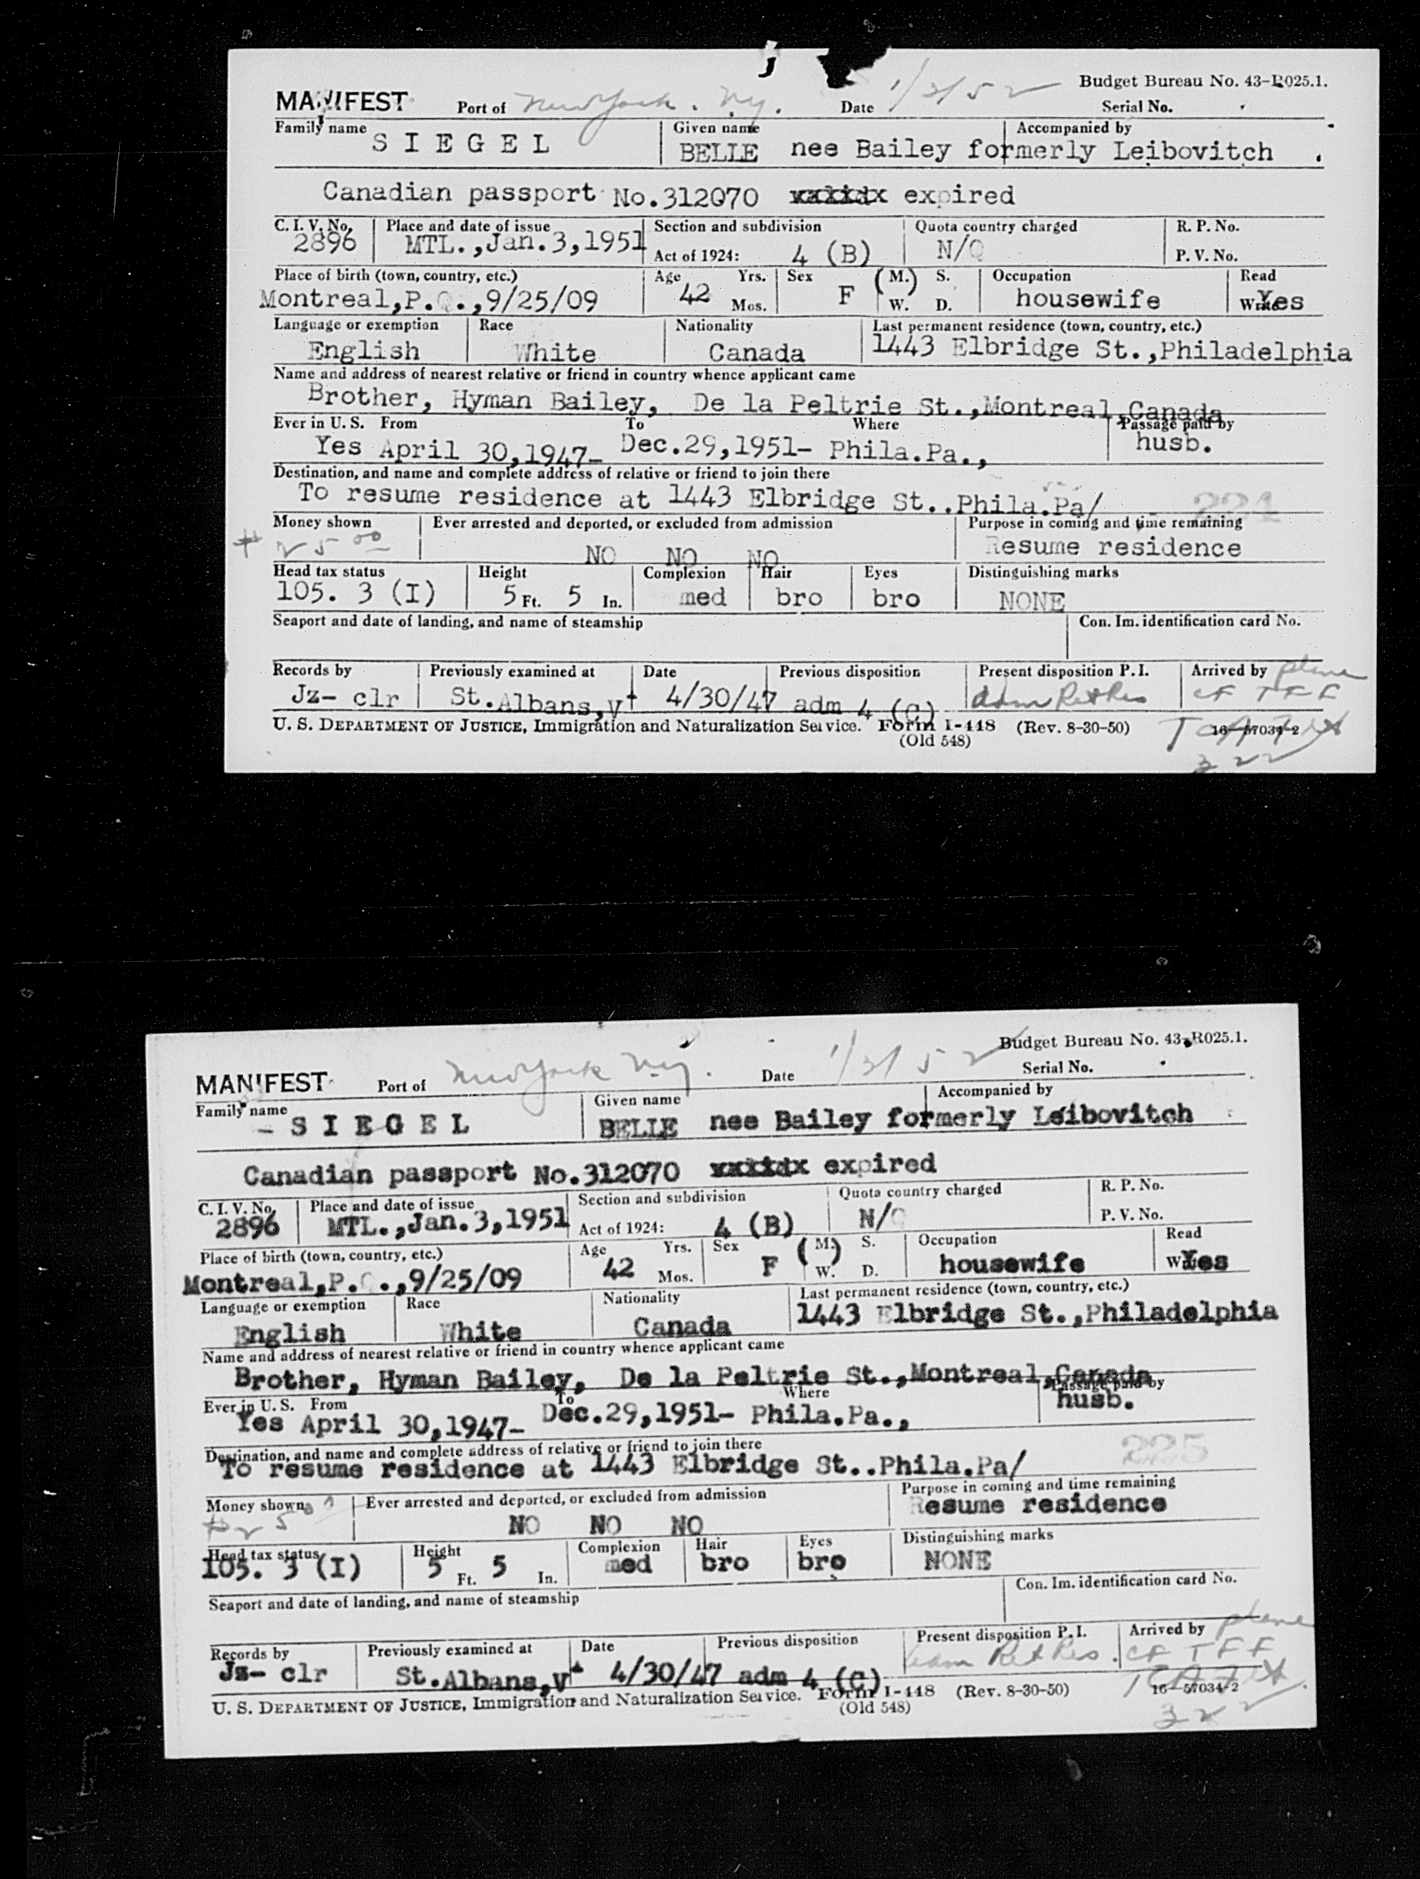 Budget Bureau No. 43-R025.1.
MANIFEST Port of New York. Ny. Date 1/2/52 Serial No.
Family name Given name Accompanied by
SIEGEL BELLE nee Bailey formerly Leibovitch
Canadian passport No.312070 xxxxdx expired
C. I. V. No. Place and date of issue Section and subdivision Quota country charged R. P. No.
2896 MTL.,Jan.3,1951 Act of 1924: 4 (B) N/Q P. V. No.
Place of birth (town, country, etc.) Age Yrs. Sex (M.) S. Occupation Read
Montreal,P.Q.,9/25/09 42 Mos. F W. D. housewife Write Yes
Language or exemption Race Nationality Last permanent residence (town, country, etc.)
English White Canada 1443 Elbridge St.,Philadelphia
Name and address of nearest relative or friend in country whence applicant came
Brother, Hyman Bailey, De la Peltrie St.,Montreal,Canada
Ever in U. S. From To Where Passage paid by
Yes April 30,1947- Dec.29,1951- Phila.Pa., husb.
Destination, and name and complete address of relative or friend to join there
To resume residence at 1443 Elbridge St..Phila.Pa/ 224
Money shown Ever arrested and deported, or excluded from admission Purpose in coming and time remaining
#25 00 NO NO NO Resume residence
Head tax status Height Complexion Hair Eyes Distinguishing marks
105. 3 (I) 5 Ft. 5 In. med bro bro NONE
Seaport and date of landing, and name of steamship Con. Im. identification card No.
Records by Previously examined at Date Previous disposition Present disposition P. I. Arrived by plane
Jz- clr St.Albans,Vt 4/30/47 adm 4 (C) adm Ret Res CF TFF
U. S. DEPARTMENT OF JUSTICE, Immigration and Naturalization Service. Form I-448 (Rev. 8-30-50) 16-57034-2
(Old 548) 322
Budget Bureau No. 43-R025.1.
MANIFEST Port of New York Ny. Date 1/2/52 Serial No.
Family name Given name Accompanied by
- SIEGEL BELLE nee Bailey formerly Leibovitch
Canadian passport No.312070 xxxxdx expired
C. I. V. No. Place and date of issue Section and subdivision Quota country charged R. P. No.
2896 MTL.,Jan.3,1951 Act of 1924: 4 (B) N/Q P. V. No.
Place of birth (town, country, etc.) Age Yrs. Sex (M.) S. Occupation Read
Montreal,P.Q.,9/25/09 42 Mos. F W. D. housewife Write Yes
Language or exemption Race Nationality Last permanent residence (town, country, etc.)
English White Canada 1443 Elbridge St.,Philadelphia
Name and address of nearest relative or friend in country whence applicant came
Brother, Hyman Bailey, De la Peltrie St.,Montreal,Canada
Ever in U. S. From To Where Passage paid by
Yes April 30,1947- Dec.29,1951- Phila.Pa., husb.
Destination, and name and complete address of relative or friend to join there
To resume residence at 1443 Elbridge St..Phila.Pa/ 225
Money shown Ever arrested and deported, or excluded from admission Purpose in coming and time remaining
#25 NO NO NO Resume residence
Head tax status Height Complexion Hair Eyes Distinguishing marks
105. 3 (I) 5 Ft. 5 In. med bro bro NONE
Seaport and date of landing, and name of steamship Con. Im. identification card No.
Records by Previously examined at Date Previous disposition Present disposition P. I. Arrived by plane
Jz- clr St.Albans,Vt 4/30/47 adm 4 (C) adm Ret Res. CF TFF
U. S. DEPARTMENT OF JUSTICE, Immigration and Naturalization Service. Form I-448 (Rev. 8-30-50) 16-57034-2
(Old 548) 322